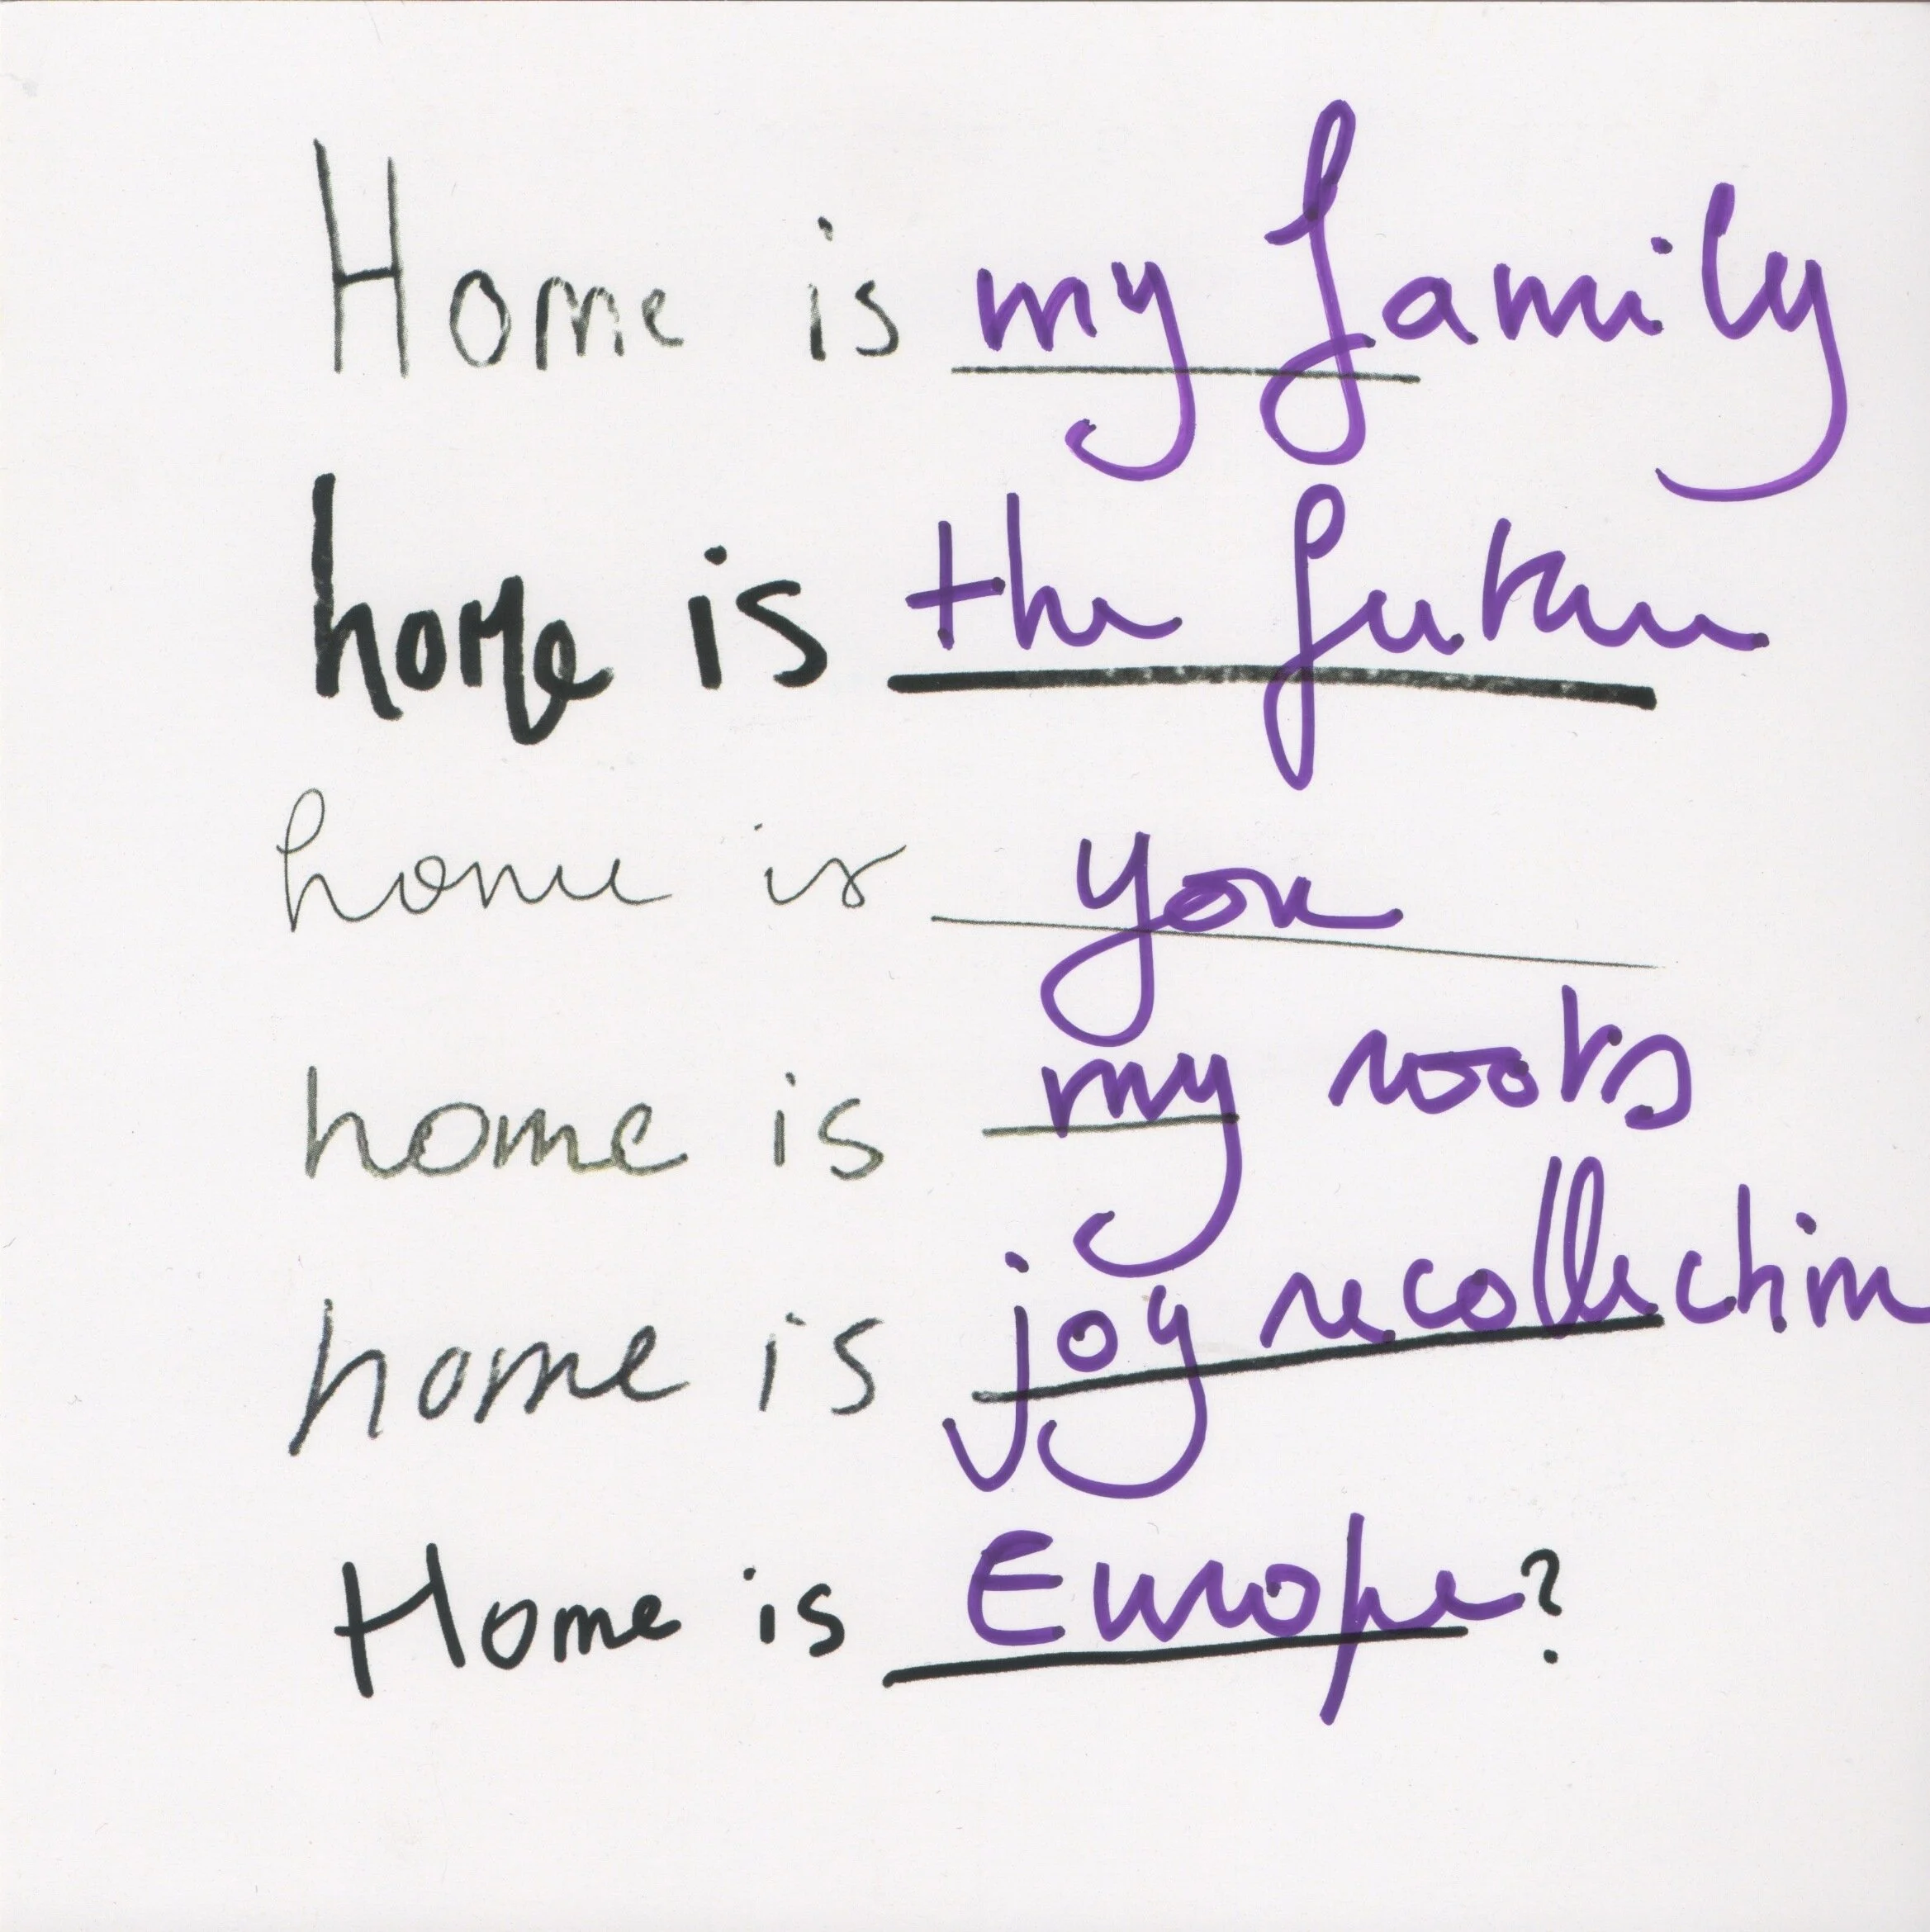 Home is my family
home is the future
home is you
home is my roots
home is joy recollection
Home is Europe?